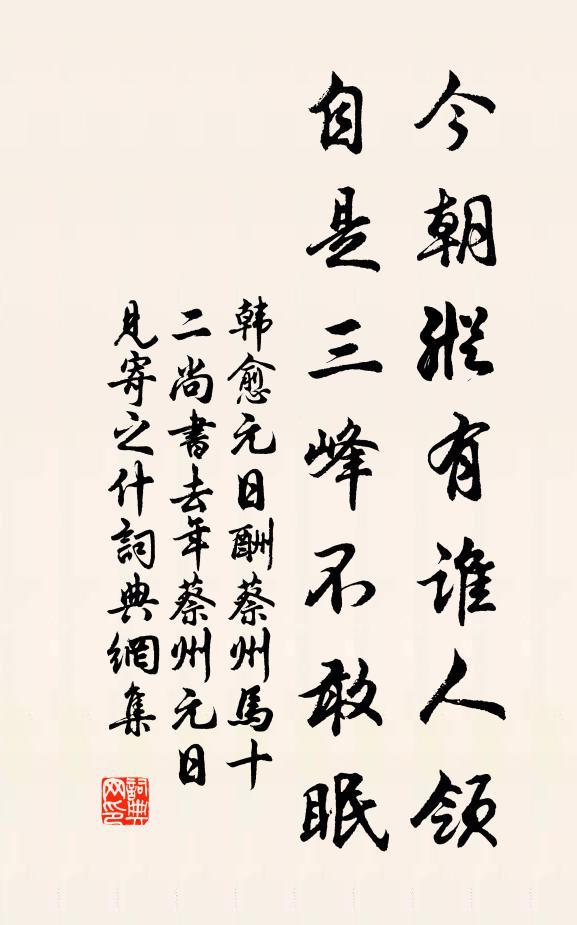 今朝縱有誰人領
自是三峰不敢眠
韩愈元日酬蔡州馬十
二尚書去年蔡州元日
見寄之什詞典網集
詞典
网印